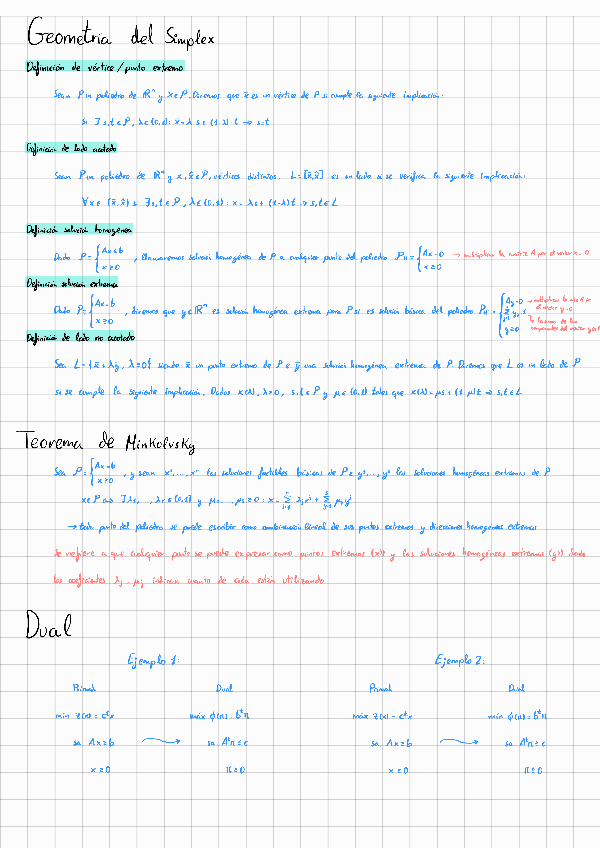 Geometría del Simplex
Definición de vértice / punto extremo
Sean P un poliedro de ℝⁿ y x̄∈P. Diremos que x̄ es un vértice de P si cumple la siguiente implicación:
Si ∃ s,t∈P, λ∈(0,1): x̄=λs+(1-λ)t ⇒ s=t
Definición de lado acotado
Sean P un poliedro de ℝⁿ y x̄, x̂∈P, vértices distintos. L=[x̄,x̂] es un lado si se verifica la siguiente implicación:
∀x∈(x̄,x̂) si ∃s,t∈P, λ∈(0,1): x=λs+(1-λ)t ⇒ s,t∈L
Definición solución homogénea
Dado P={Ax=b, x≥0 , llamaremos solución homogénea de P a cualquier punto del poliedro P_H={Ax=0, x≥0 → multiplicar la matriz A por el vector x=0
Definición solución extrema
Dado P={Ax=b, x≥0 , diremos que y∈ℝⁿ es solución homogénea extrema para P si es solución básica del poliedro P_H={Ay=0, Σ yⱼ=1, y≥0
→ multiplicar la matriz por el vector y=0
→ la suma de las componentes del vector y es 1
Definición de lado no acotado
Sea L={x̄+λȳ, λ≥0} siendo x̄ un punto extremo de P e ȳ una solución homogénea extrema de P. Diremos que L es un lado de P
si se cumple la siguiente implicación. Dados x(λ), λ>0, s,t∈P y μ∈(0,1) tales que x(λ)=μs+(1-μ)t ⇒ s,t∈L
Teorema de Minkolvsky
Sea P={Ax=b, x≥0 , y sean x¹,...,xʳ las soluciones factibles básicas de P e y¹,...,yˢ las soluciones homogéneas extremas de P
x∈P ⇔ ∃λ₁,...,λᵣ∈[0,1] y μ₁,...,μₛ≥0 : x=Σ λⱼxʲ+Σ μⱼyʲ
→ todo punto del poliedro se puede escribir como combinación lineal de sus puntos extremos y direcciones homogéneas extremas
Se refiere a que cualquier punto se puede expresar como puntos extremos (xʲ) y las soluciones homogéneas extremas (yʲ) donde
los coeficientes λⱼ, μⱼ indican cuanto de cada están utilizando
Dual
Ejemplo 1:
Primal Dual
min z(x)=cᵗx máx φ(π)=bᵗπ
sa Ax≥b → sa Aᵗπ≤c
x≥0 π≥0
Ejemplo 2:
Primal Dual
máx z(x)=cᵗx min φ(π)=bᵗπ
sa Ax≤b → sa Aᵗπ≥c
x≥0 π≥0